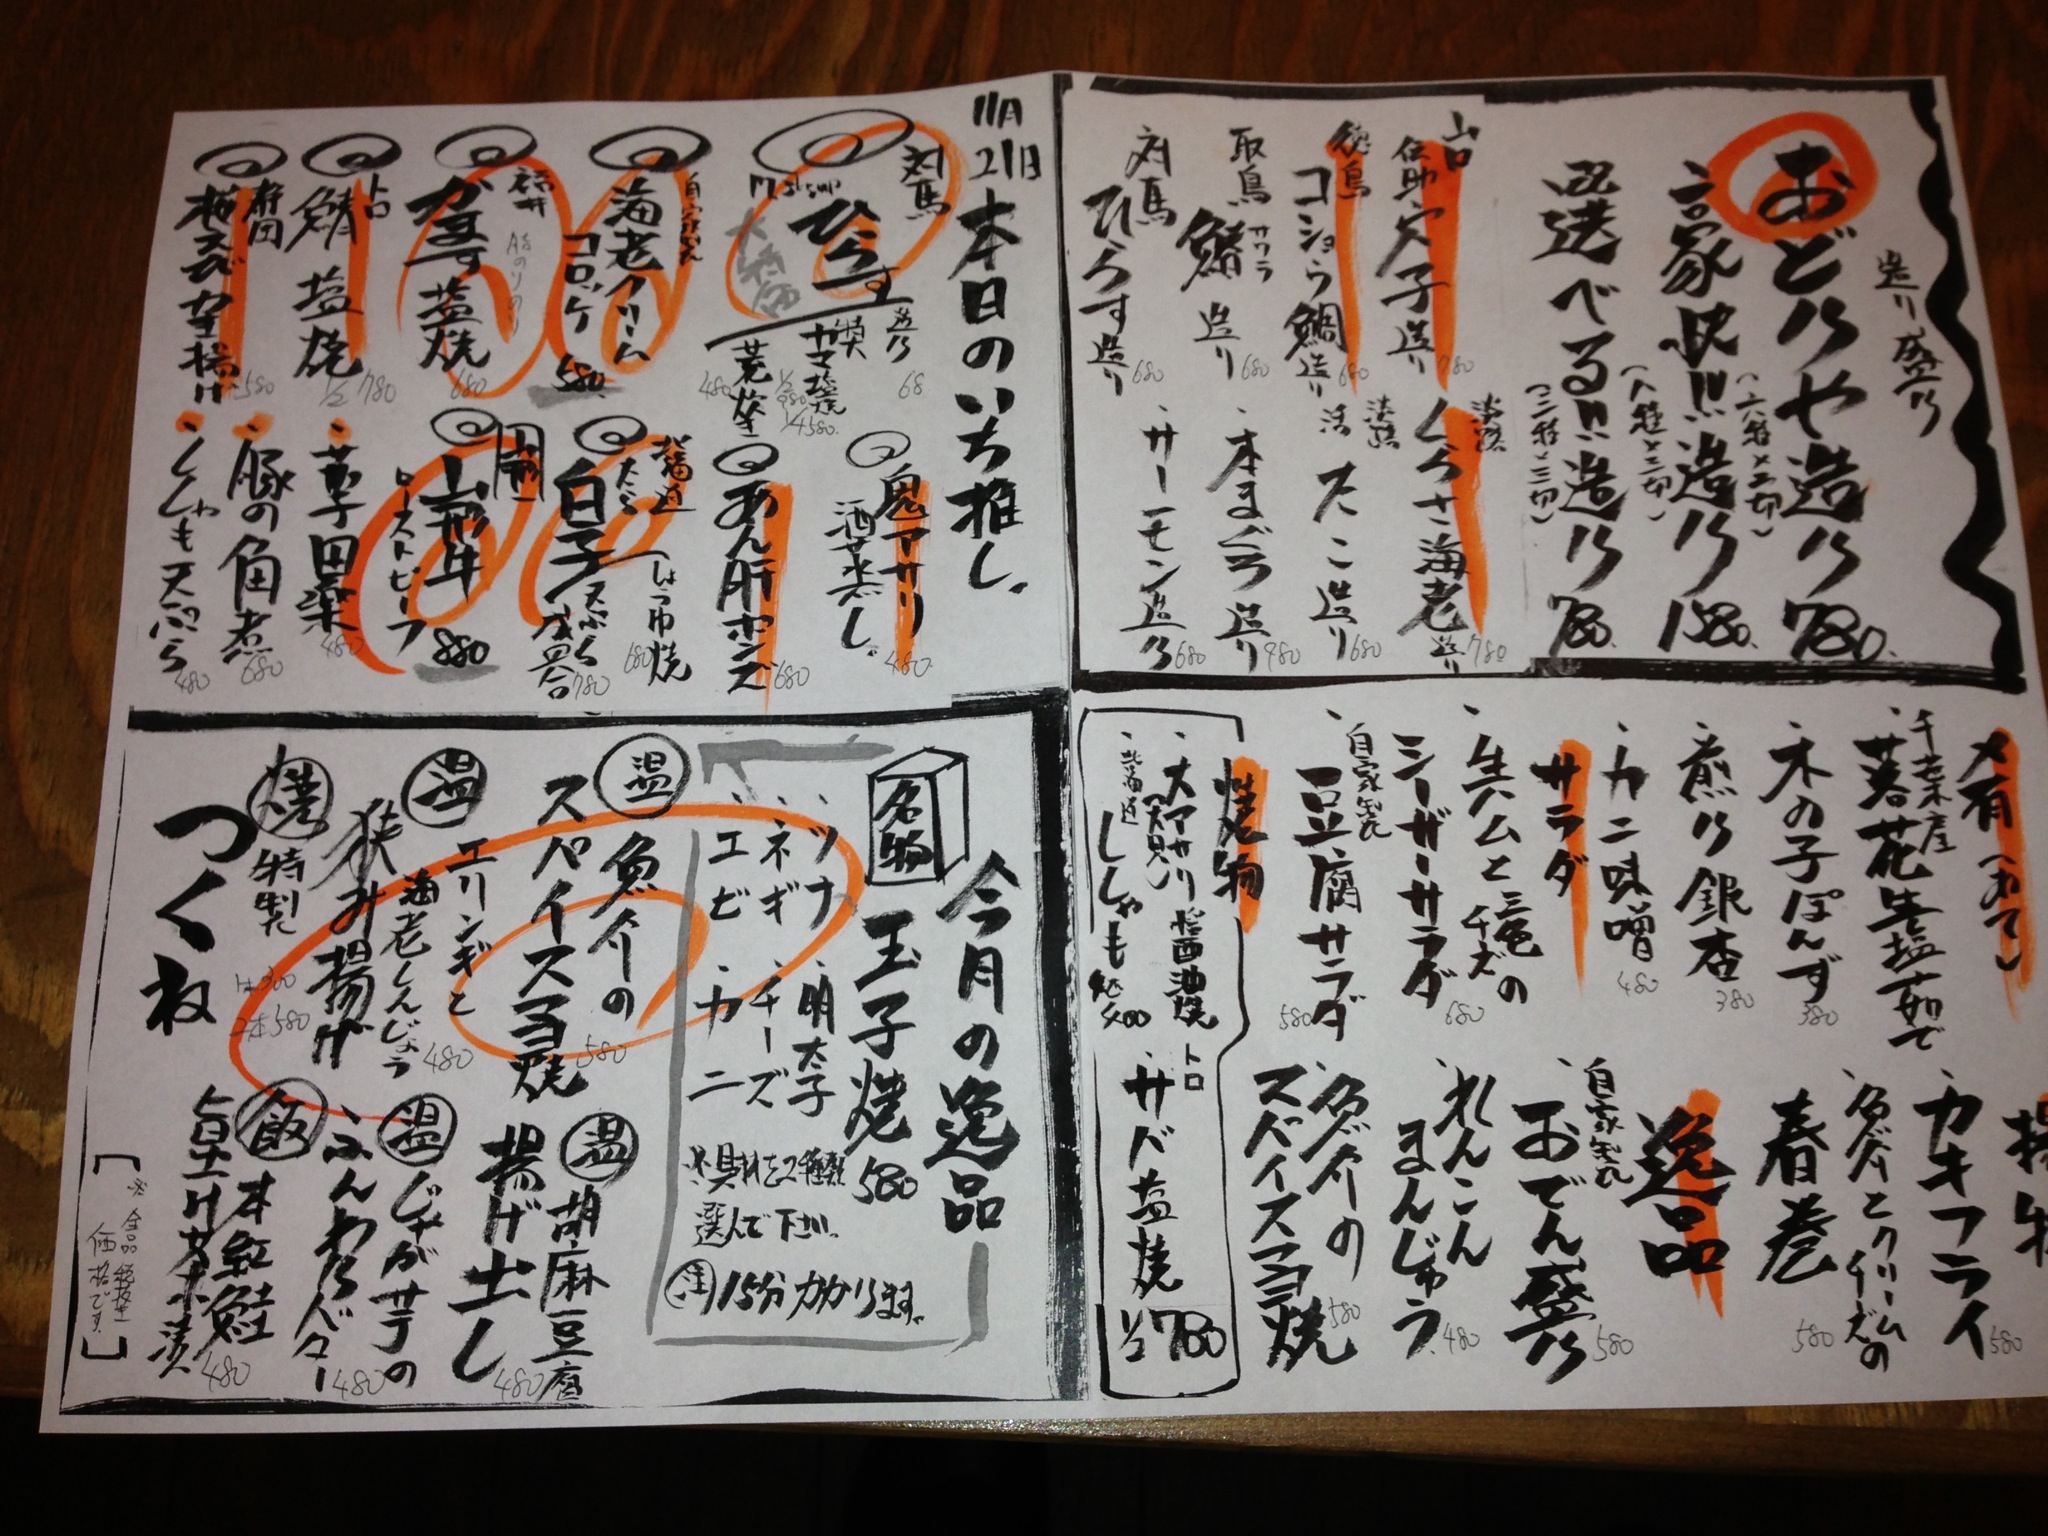 造り盛り
おどりや造り 780
(六種×二切)
豪快!!造り 1580
(八種×三切)
選べる!!造り 780
(三種×三切)
山口
伝助穴子造り 780
徳島
コショウ鯛造り 680
鳥取
サワラ
鰆造り 680
対馬
ひらす造り 680
淡路
くらさこ海老造り 780
淡路
活たこ造り 680
本まぐろ造り 980
サーモン造り 680
11月21日
本日のいち推し。
対馬
ひらす
造り 68
カマ塩焼
1/2 980
1/4 580
荒炊き 480
自家製
海老クリームコロッケ 580
福井
かます塩焼 680
トロ
鯖塩焼
1/2 780
静岡
桜えびかき揚げ 580
鬼アサリ
酒蒸し。 480
あん肝ポンズ 680
北海道
たら
白子
しょっつる焼 680
天ぷら盛合 780
山形牛
ローストビーフ 880
茄子田楽 480
豚の角煮 680
ししゃも天ぷら 480
〆有(あて)
千葉産
落花生塩茹で
木の子ぽんず 380
煎り銀杏 380
カニ味噌 480
サラダ
生ハムと三種のチーズの
シーザーサラダ 680
自家製
豆腐サラダ 580
焼物
大アサリ醤油焼
北海道
ししゃも
トロ
サバ塩焼
1/2 780
揚物
カキフライ 580
魚介とクリームチーズの
春巻 580
逸品
自家製
おでん盛り 580
れんこん
まんじゅう 480
魚介の
スパイスマヨ焼 580
今月の逸品
名物
玉子焼 580
ツナ
ネギ
エビ
明太子
チーズ
カニ
※具材を2種類
選んで下さい。
注 15分かかります。
温
魚介の
スパイスマヨ焼 580
温
エリンギと
海老しんじょう
挟み揚げ 480
焼
特製
つくね
1本 300
2本 580
温
胡麻豆腐
揚げ出し 480
温
じゃが芋の
ふんわりバター 480
飯
本紅鮭
出汁茶漬 480
[※全品税抜き
価格です。]